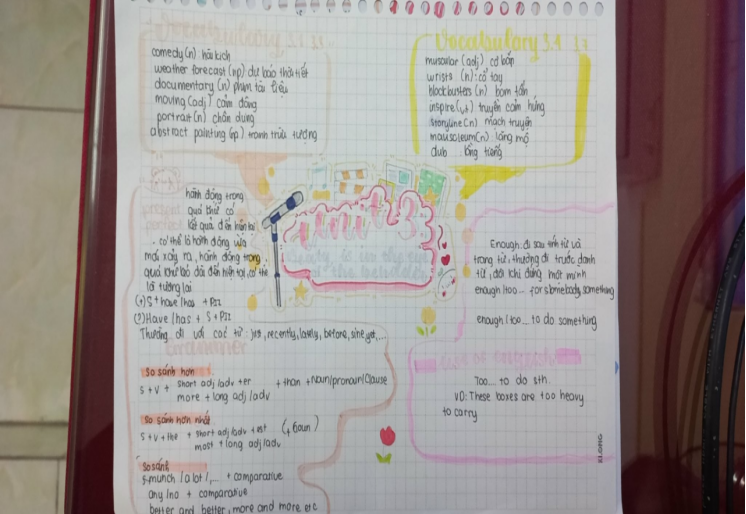 Vocabulary 3.1
comedy (n) hài kịch
weather forecast (np) dự báo thời tiết
documentary (n) phim tài liệu
moving (adj) cảm động
portrait (n) chân dung
abstract painting (np) tranh trừu tượng
Vocabulary 3.1
muscular (adj) cơ bắp
wrists (n): cổ tay
blockbusters (n) bom tấn
inspire (vt) truyền cảm hứng
storyline (n) mạch truyện
mausoleum (n) lăng mộ
dub lồng tiếng
unit 3
Beauty is in the eye
of the beholder
present
perfect
hành động trong
quá khứ có
kết quả đến hiện tại
. có thể là hành động vừa
mới xảy ra, hành động trong
quá khứ kéo dài đến hiện tại, có thể
là tương lai
(+) S + have / has + PII
(?) Have / has + S + PII
Thường đi với các từ: just, recently, lately, before, since, yet,....
Grammar
So sánh hơn
S + V + short adj /adv + er + than + Noun/pronoun/Clause
more + long adj /adv
So sánh hơn nhất
S + V + the + short adj /adv + est (+ noun)
most + long adj/adv
So sánh
much /a lot /,... + comparative
any /no + comparative
better and better, more and more etc
Enough: đi sau tính từ và
trạng từ, thường đi trước danh
từ, đôi khi đứng một mình
enough /too... for somebody, something
enough / too... to do something
Too... to do sth.
VD: These boxes are too heavy
to carry
KLONG